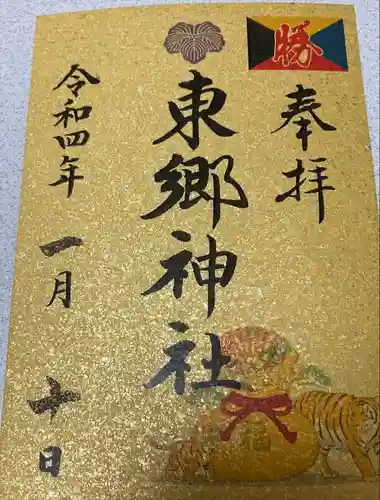 勝
奉拝
東郷神社
令和四年
一月
十日
福